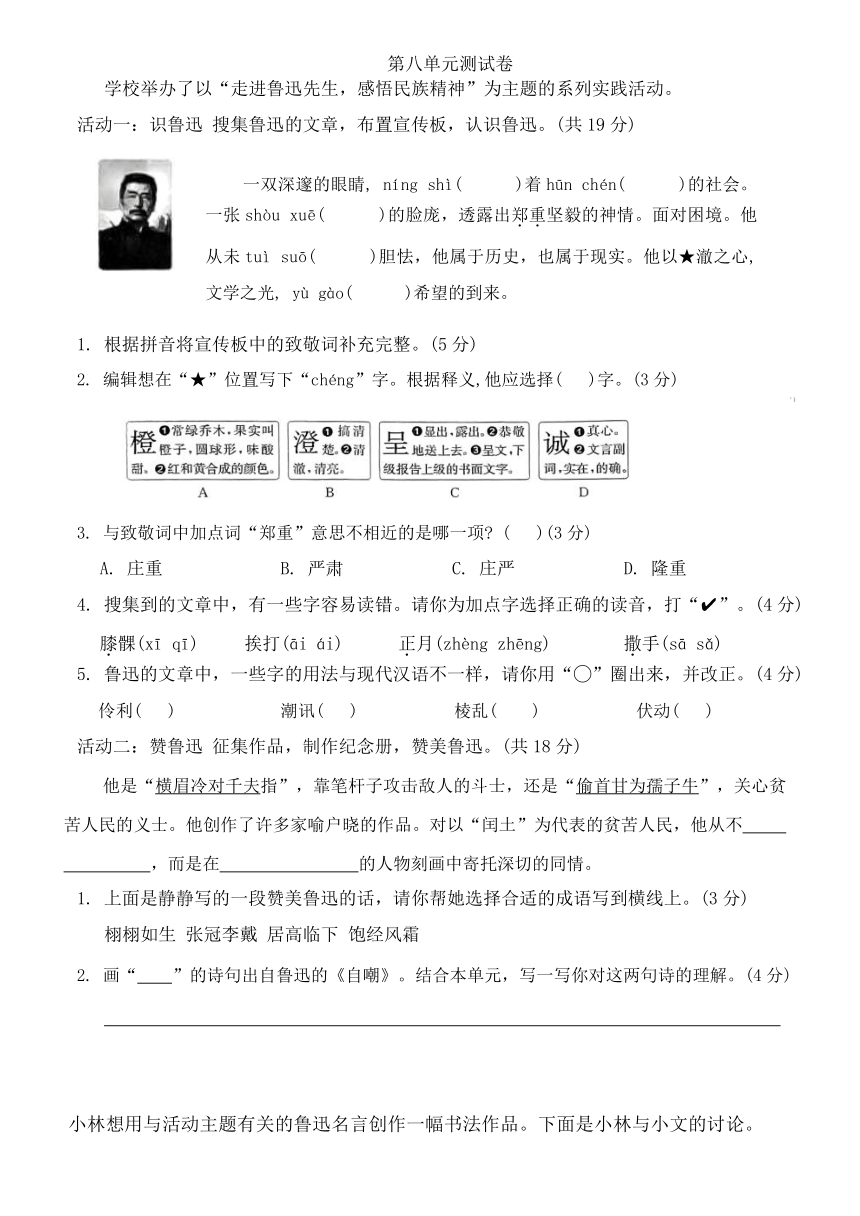 第八单元测试卷
学校举办了以“走进鲁迅先生，感悟民族精神”为主题的系列实践活动。
活动一：识鲁迅 搜集鲁迅的文章，布置宣传板，认识鲁迅。(共19分)
一双深邃的眼睛，níng shì( )着hūn chén( )的社会。
一张shòu xuē( )的脸庞，透露出郑重坚毅的神情。面对困境。他
从未tuì suō( )胆怯，他属于历史，也属于现实。他以★澈之心，
文学之光，yù gào( )希望的到来。
1. 根据拼音将宣传板中的致敬词补充完整。(5分)
2. 编辑想在“★”位置写下“chéng”字。根据释义,他应选择( )字。(3分)
橙 ❶常绿乔木,果实叫橙子,圆球形,味酸甜。❷红和黄合成的颜色。
澄 ❶搞清楚。❷清澈,清亮。
呈 ❶显出,露出。❷恭敬地送上去。❸呈文,下级报告上级的书面文字。
诚 ❶真心。❷文言副词,实在,的确。
A B C D
3. 与致敬词中加点词“郑重”意思不相近的是哪一项? ( )(3分)
A. 庄重 B. 严肃 C. 庄严 D. 隆重
4. 搜集到的文章中，有一些字容易读错。请你为加点字选择正确的读音，打“✔”。(4分)
膝髁(xī qī) 挨打(āi ái) 正月(zhèng zhēng) 撒手(sā sǎ)
5. 鲁迅的文章中，一些字的用法与现代汉语不一样，请你用“◯”圈出来，并改正。(4分)
伶利( ) 潮讯( ) 棱乱( ) 伏动( )
活动二：赞鲁迅 征集作品，制作纪念册，赞美鲁迅。(共18分)
他是“横眉冷对千夫指”，靠笔杆子攻击敌人的斗士，还是“偷首甘为孺子牛”，关心贫
苦人民的义士。他创作了许多家喻户晓的作品。对以“闰土”为代表的贫苦人民，他从不____
________，而是在____________的人物刻画中寄托深切的同情。
1. 上面是静静写的一段赞美鲁迅的话，请你帮她选择合适的成语写到横线上。(3分)
栩栩如生 张冠李戴 居高临下 饱经风霜
2. 画“____”的诗句出自鲁迅的《自嘲》。结合本单元，写一写你对这两句诗的理解。(4分)
小林想用与活动主题有关的鲁迅名言创作一幅书法作品。下面是小林与小文的讨论。